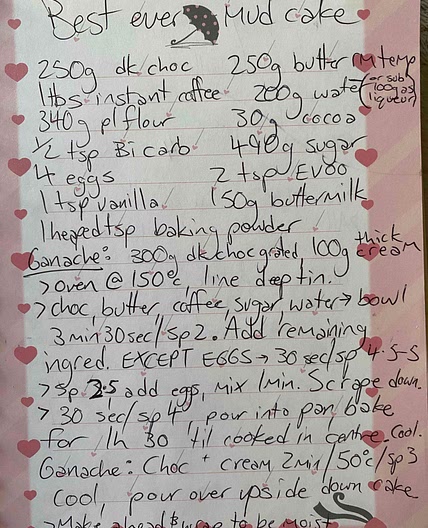 Best ever Mud cake
250g dk choc 250g butter rm temp
1tbs instant coffee 200g water (or sub 100g as liqueur)
340g pl flour 30g cocoa
1/2 tsp Bicarb 490g sugar
4 eggs 2 tsp EVOO
1 tsp vanilla 150g buttermilk
1 heaped tsp baking powder
Ganache: 300g dk choc grated, 100g thick cream
> oven @ 150°c, line deep tin.
> choc, butter, coffee, sugar, water → bowl
3 min 30 sec/sp 2. Add remaining
ingred. EXCEPT EGGS → 30 sec/sp 4.5-5
> Sp 2.5 add eggs, mix 1min. Scrape down.
> 30 sec/sp 4, pour into pan, bake
for 1h 30 'til cooked in centre. Cool.
Ganache: Choc + cream 2min/50°c/sp3
Cool, pour over upside down cake
> Make ahead & wrap to be moist